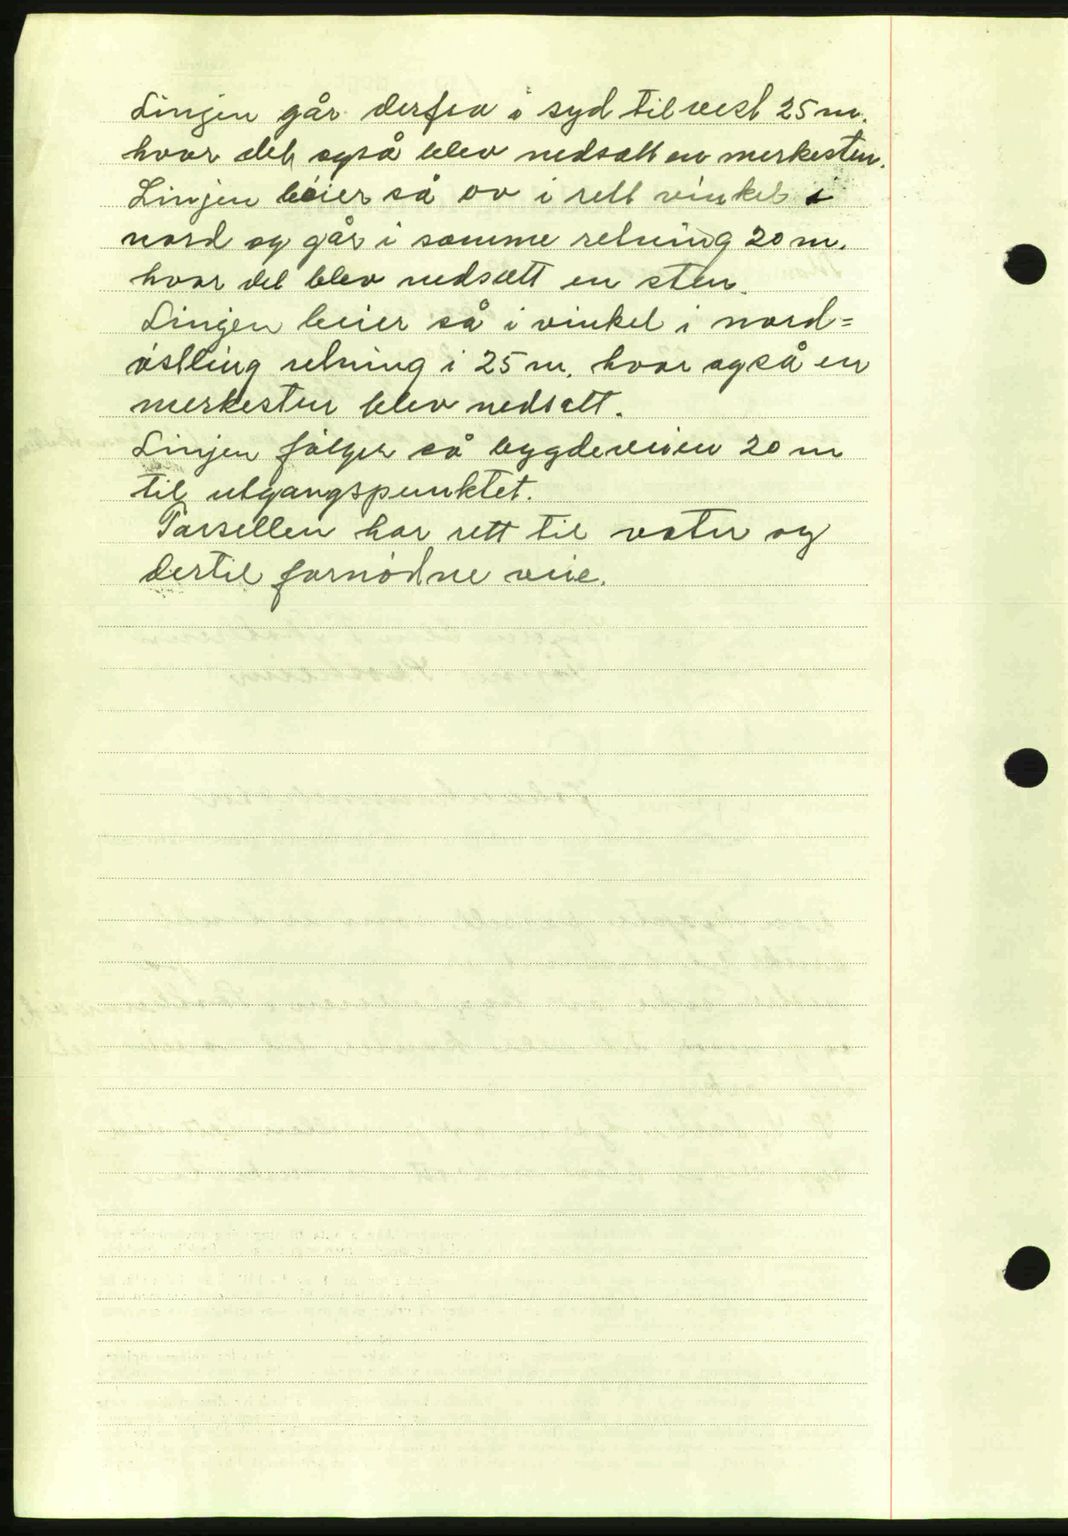 Linjen går derfra i syd til vest 25 m.
hvor det også blev nedsatt en merkesten.
Linjen beier så av i rett vinkel i
nord og går i samme retning 20 m.
hvor det blev nedsatt en sten.
Linjen beier så i vinkel i nord=
østling retning i 25 m. hvor også en
merkesten blev nedsatt.
Linjen følger så bygdeveien 20 m
til utgangspunktet.
Parsellen har rett til vatn og
dertil fornødne veie.